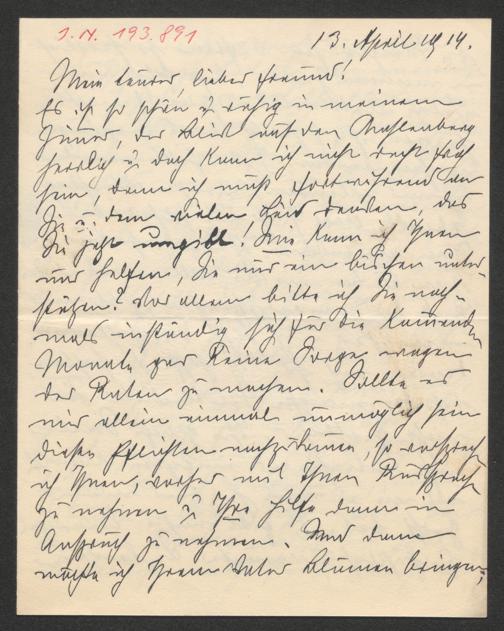 J.N. 193.891
13. April 1914.
Mein teurer, lieber Freund!
Es ist so schön u. ruhig in meinem
Zimmer, der Blick auf den Kahlenberg
herrlich u. doch kann ich nicht recht froh
sein, denn ich muß fortwährend an
Sie u. dem vielen Leid denken, das
Sie jetzt umgibt! Wie kann ich Ihnen
nur helfen, Sie nur ein bischen unter-
stützen? Vor allem bitte ich Sie noch-
mals inständig sich für die kommenden
Monate gar keine Sorge wegen
der Raten zu machen. Sollte es
mir allein einmal unmöglich sein
diesen Pflichten nachzukommen, so verspreche
ich Ihnen, vorher mit Ihnen Rücksprache
zu nehmen u. Ihre Hilfe dann in
Anspruch zu nehmen. Und dann
möchte ich Ihrem Vater Blumen bringen,